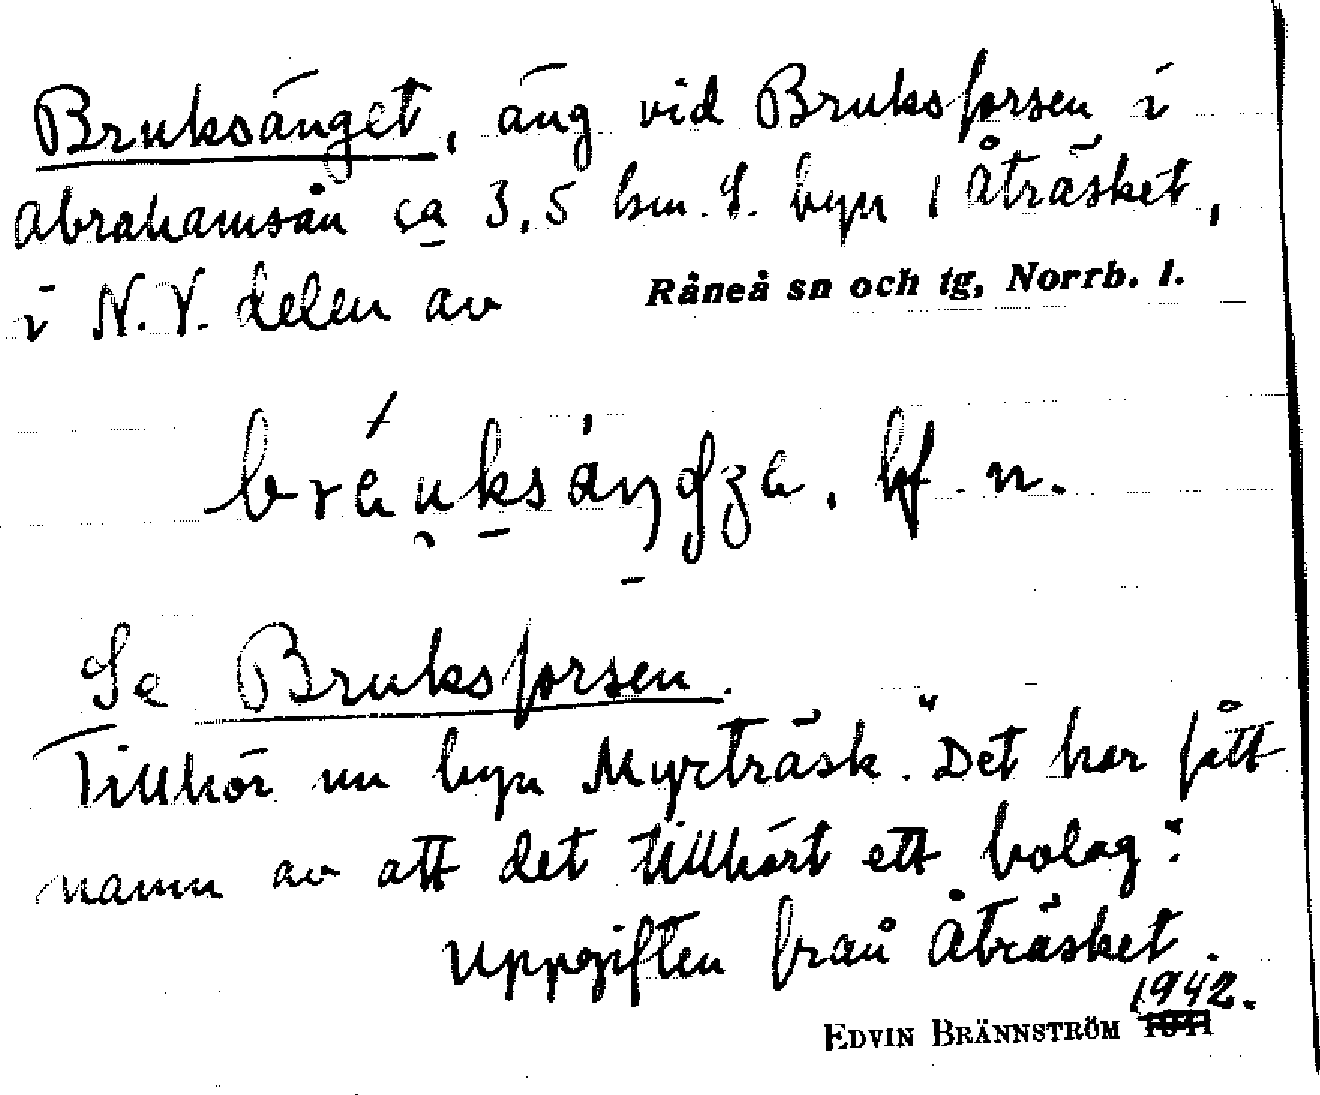 Bruksänget, äng vid Bruksforsen i
Abrahamsån ca 3,5 km. S. byn i Åträsket,
i N.V. delen av Råneå sn och tg, Norrb. l.
bf. n.
Se Bruksforsen.
Tillhör nu byn Myrträsk. "Det har fått
namn av att det tillhört ett bolag".
Uppgiften från Åträsket.
1942.
EDVIN BRÄNNSTRÖM 1941